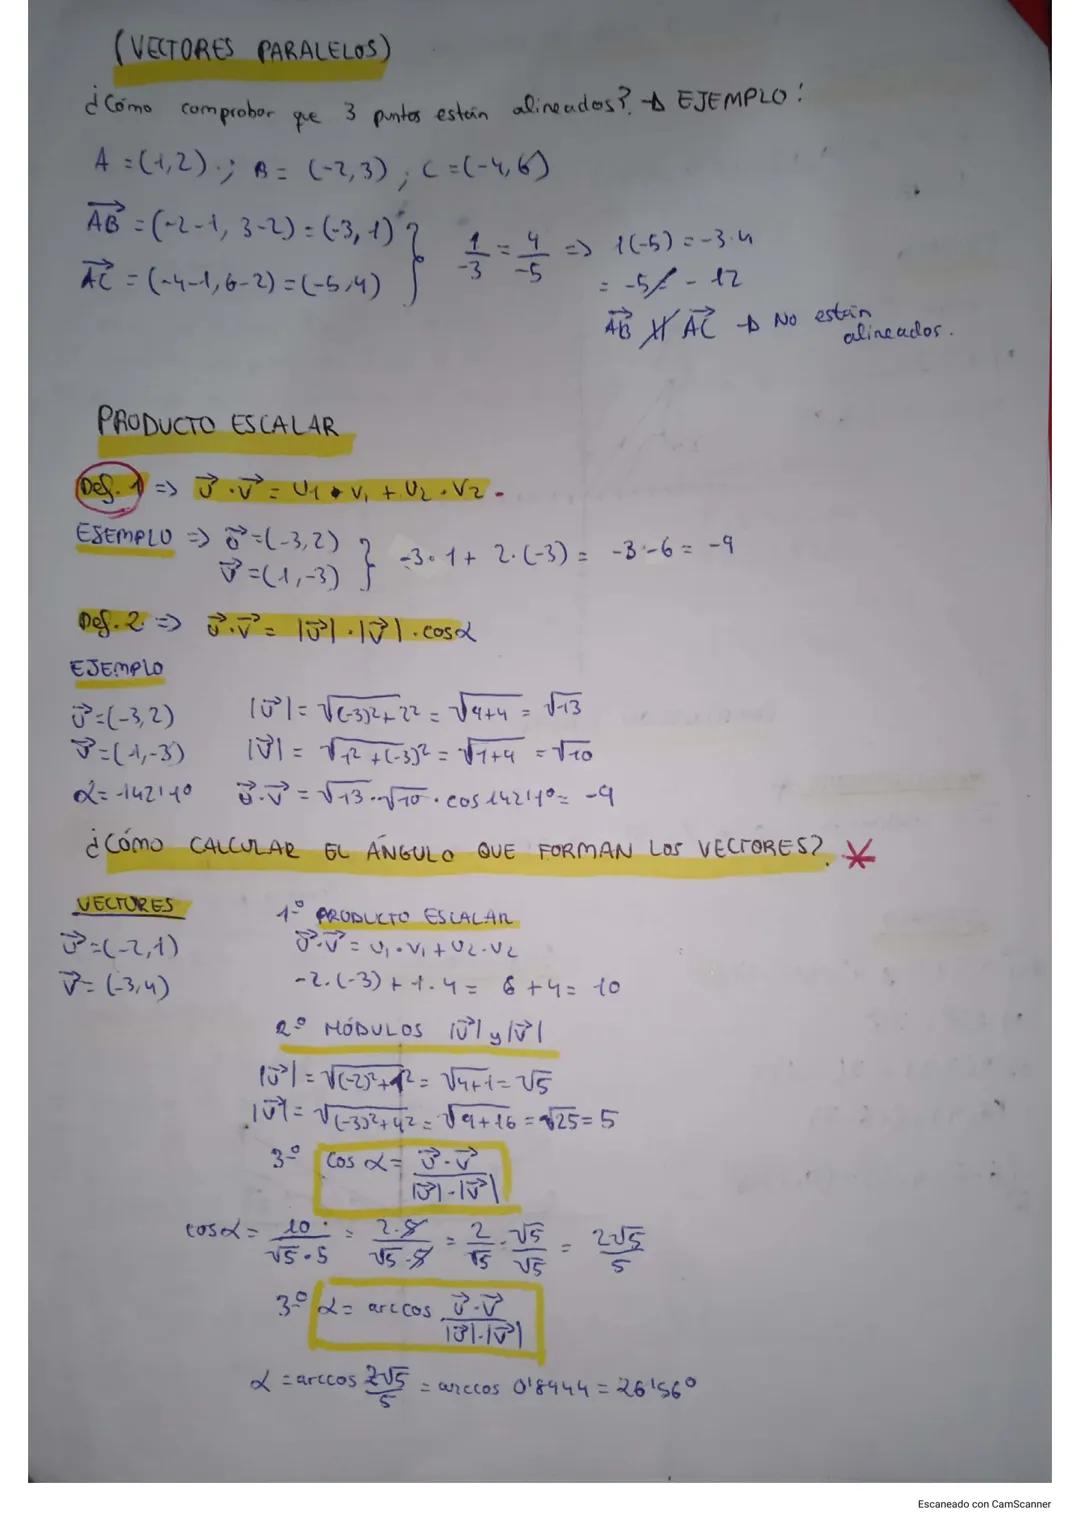 (VECTORES PARALELOS)
¿Cómo comprobar que 3 puntos están alineados? → EJEMPLO:
A = (1,2) ; B = (-2,3) ; C = (-4,6)
AB = (-2-1, 3-2) = (-3,1) } 1/-3 = 4/-5 => 1(-5) = -3·4
AC = (-4-1, 6-2) = (-5,4) = -5 ≠ -12
AB ∦ AC → No están alineados.
PRODUCTO ESCALAR
Def. 1 => u⃗·v⃗ = u1·v1 + u2·v2.
EJEMPLO => u⃗ = (-3,2) } -3·1 + 2·(-3) = -3-6 = -9
v⃗ = (1,-3)
Def. 2. => u⃗·v⃗ = |u⃗|·|v⃗|·cosα
EJEMPLO
u⃗ = (-3,2) |u⃗| = √(-3)²+2² = √9+4 = √13
v⃗ = (1,-3) |v⃗| = √1²+(-3)² = √1+9 = √10
α = 142'10 u⃗·v⃗ = √13·√10·cos 142'1º = -9
¿CÓMO CALCULAR EL ÁNGULO QUE FORMAN LOS VECTORES? *
VECTORES 1º PRODUCTO ESCALAR
u⃗ = (-2,1) u⃗·v⃗ = u1·v1 + u2·v2
v⃗ = (-3,4) -2·(-3) + 1·4 = 6+4 = 10
2º MÓDULOS |u⃗| y |v⃗|
|u⃗| = √(-2)²+1² = √4+1 = √5
|v⃗| = √(-3)²+4² = √9+16 = √25 = 5
3º cos α = u⃗·v⃗ / |u⃗|·|v⃗|
cosα = 10/√5·5 = 2·5/√5·5 = 2/√5·√5/√5 = 2√5/5
3º α = arccos u⃗·v⃗ / |u⃗|·|v⃗|
α = arccos 2√5/5 = arccos 0'8944 = 26'56º
Escaneado con CamScanner